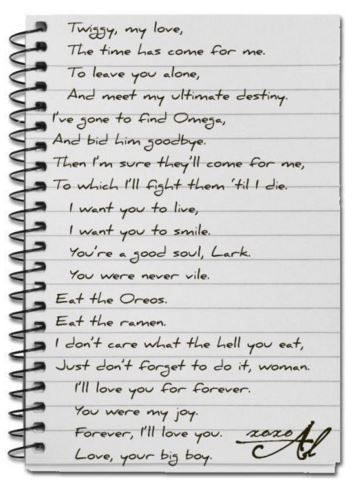 Twiggy, my love,
The time has come for me.
To leave you alone,
And meet my ultimate destiny.
I've gone to find Omega,
And bid him goodbye.
Then I'm sure they'll come for me,
To which I'll fight them 'til I die.
I want you to live,
I want you to smile.
You're a good soul, Lark.
You were never vile.
Eat the Oreos.
Eat the ramen.
I don't care what the hell you eat,
Just don't forget to do it, woman.
I'll love you for forever.
You were my joy.
Forever, I'll love you.
Love, your big boy.
xoxo Al